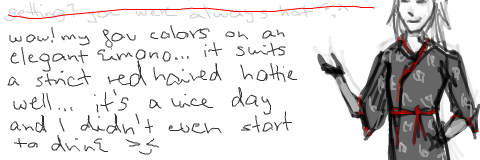 getting? you were always hot
wow! my fav colors on an
elegant kimono... it suits
a strict red haired hottie
well... it's a nice day
and I didn't even start
to drink >:<